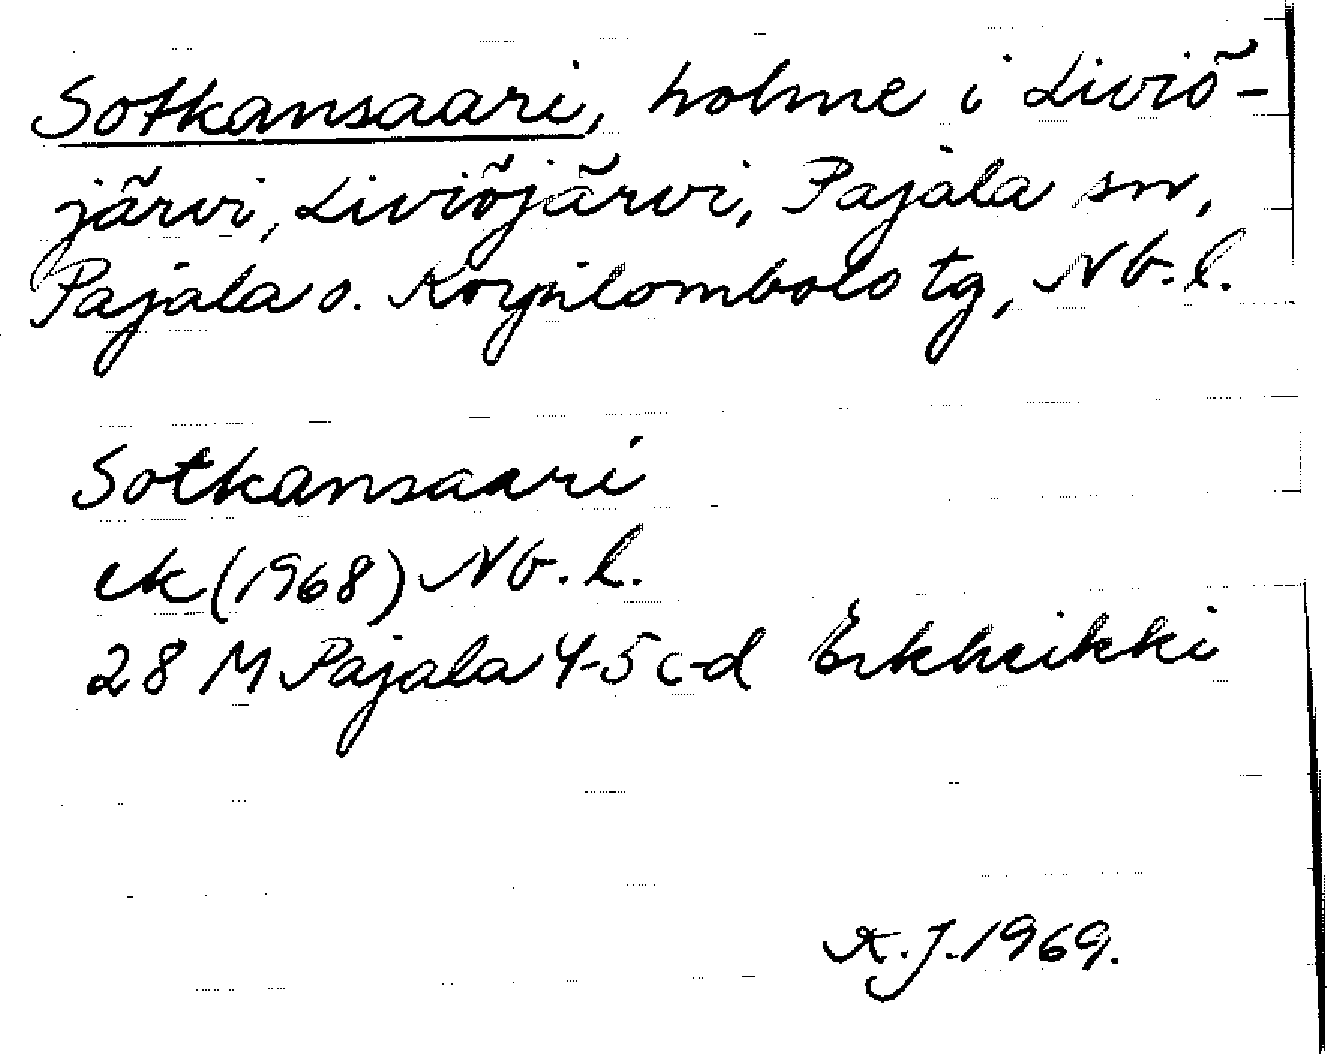 Sotkansaari, holme i Liviö-
järvi, Liviöjärvi, Pajala sn,
Pajala o. Korpilombolo tg, Nb. l.
Sotkansaari
ek (1968) Nb. l.
28 M Pajala 4-5 c-d Erkheikki
K. J. 1969.